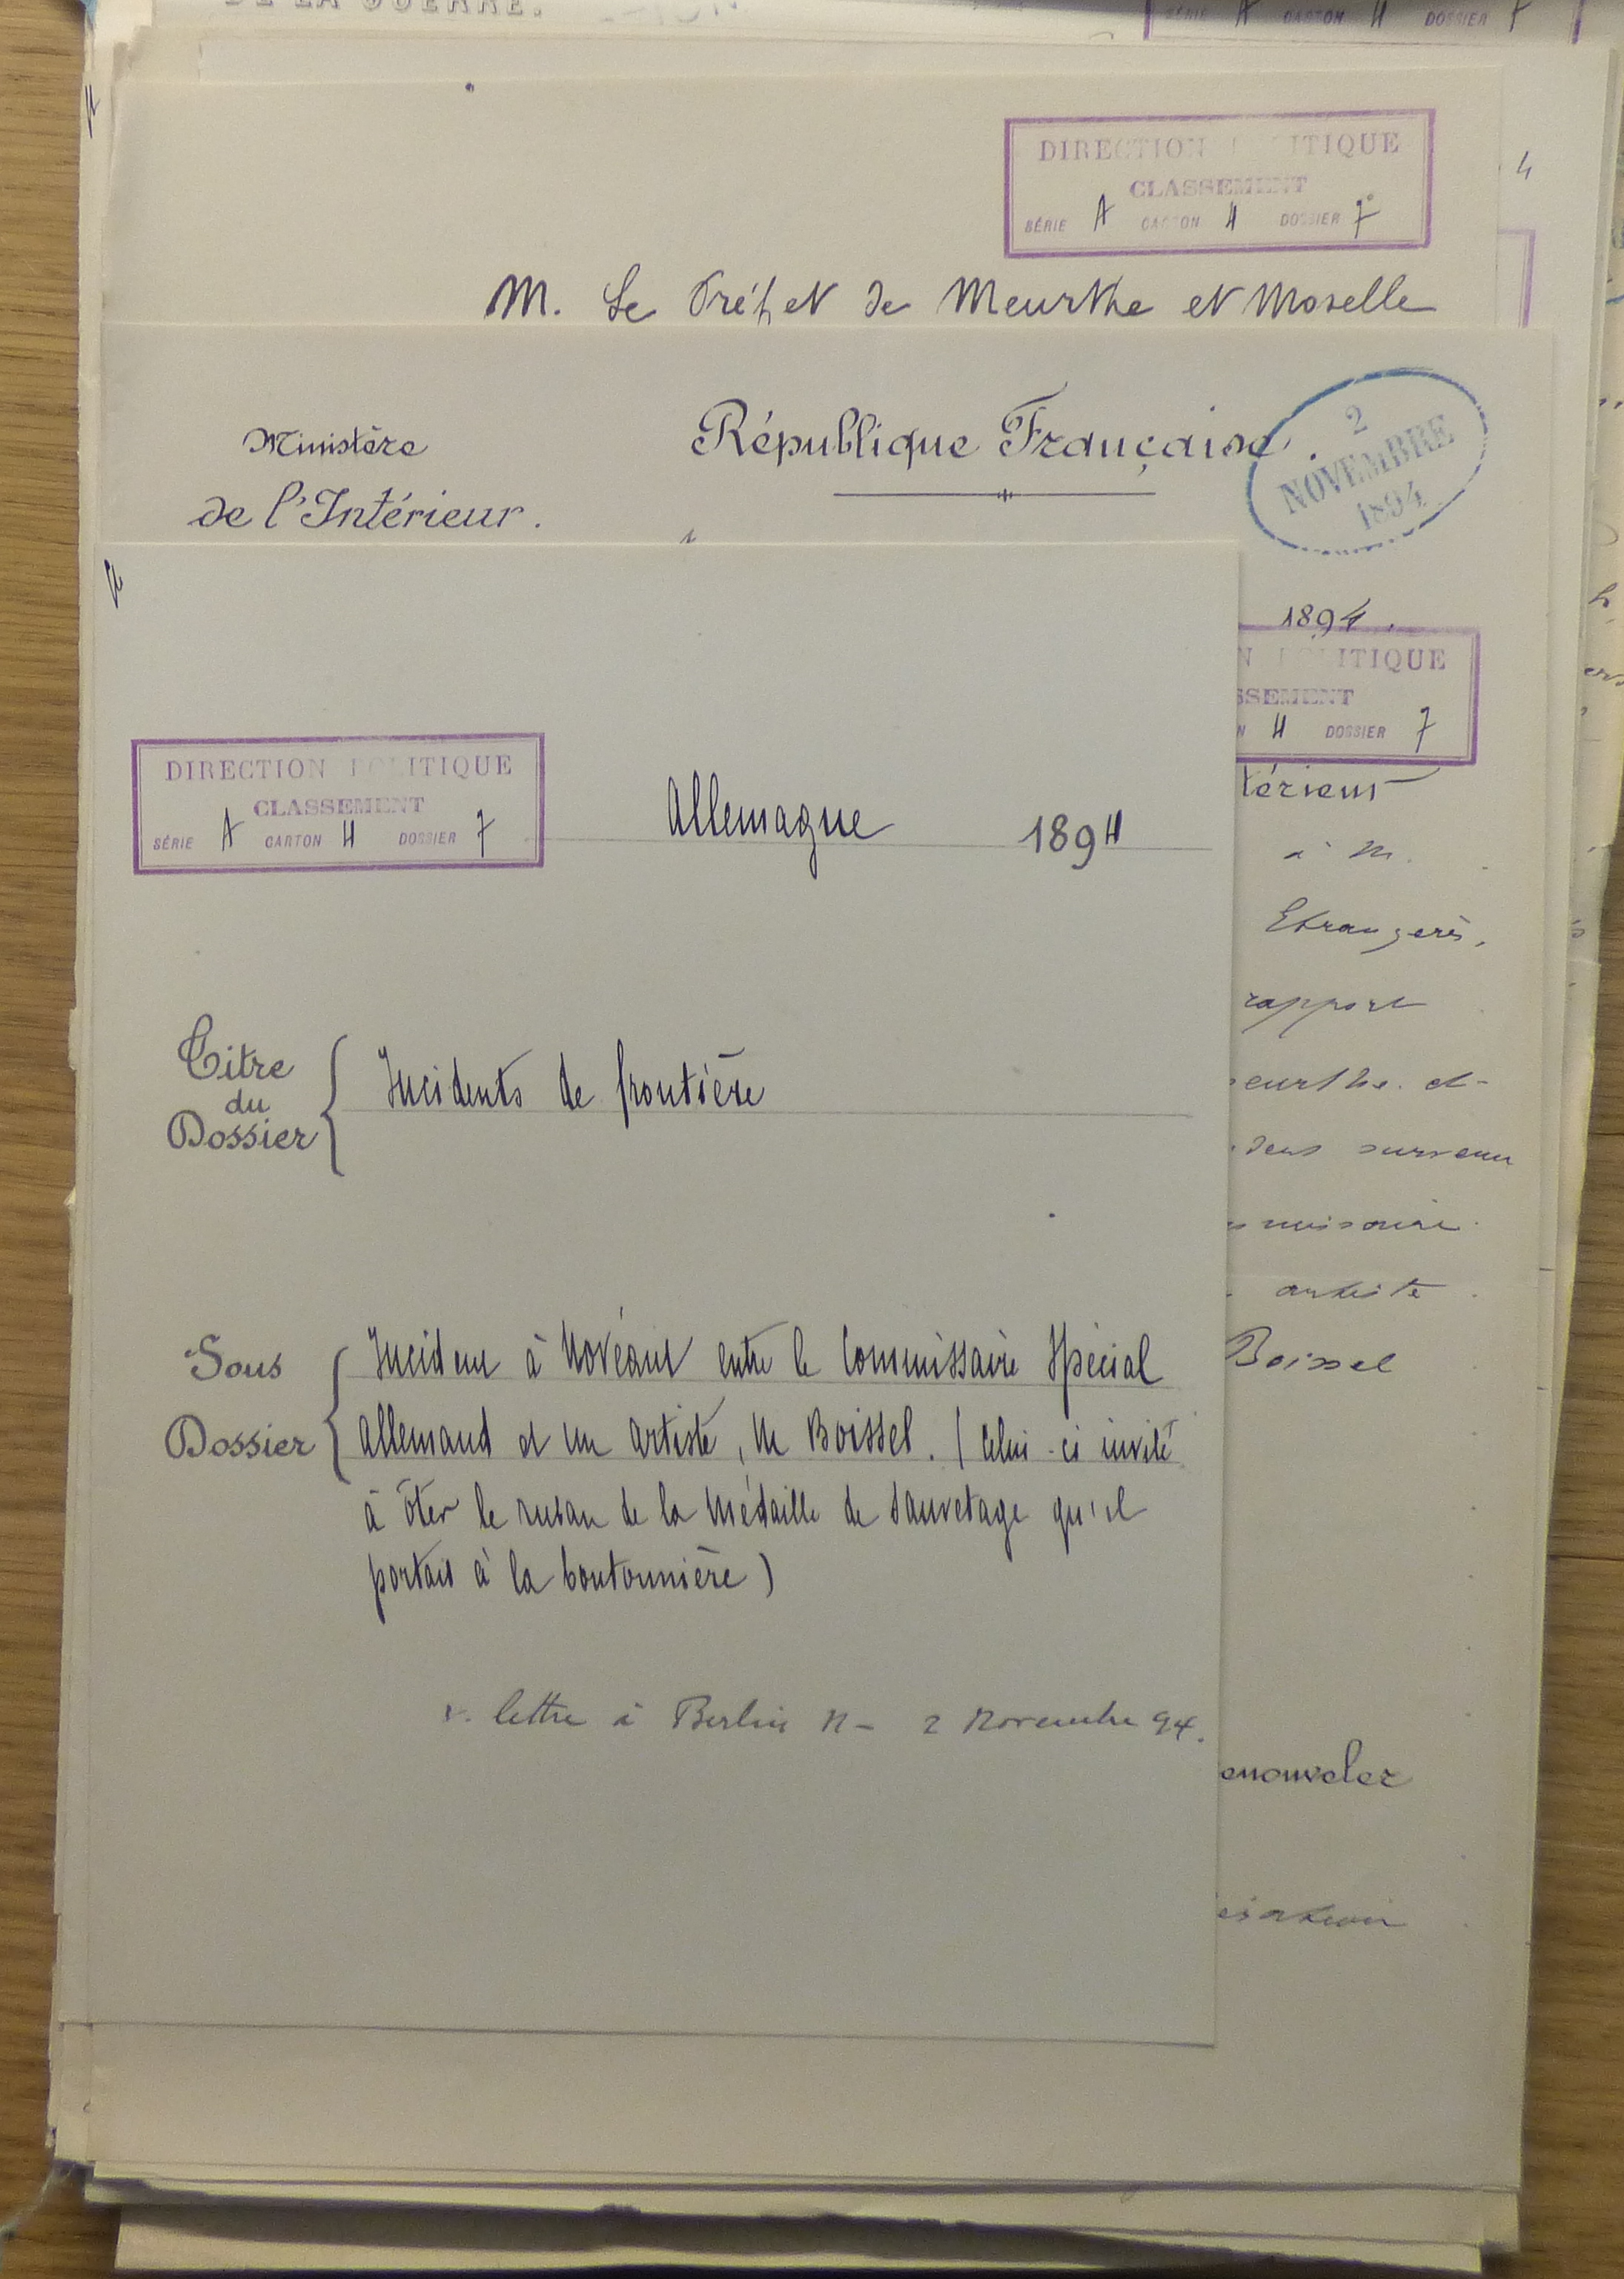 DE LA GUERRE.
SÉRIE A CARTON 4 DOSSIER 7
DIRECTION POLITIQUE
CLASSEMENT
SÉRIE A CARTON 4 DOSSIER 7
M. Le Préfet de Meurthe et Moselle
Ministère
de l'Intérieur.
République Française.
2
NOVEMBRE
1894
1894.
N POLITIQUE
SSEMENT
N 4 DOSSIER 7
térieur
à M.
Etrangères,
rapport
eurthe et
survenu
missaire
artiste
Boissel
enouveler
DIRECTION POLITIQUE
CLASSEMENT
SÉRIE A CARTON 4 DOSSIER 7
Allemagne 1894
Titre
du
Dossier
Incidents de frontière
Sous
Dossier
Incident à Novéant entre le Commissaire Spécial
allemand et un artiste, M Boissel. (Celui-ci invité
à ôter le ruban de la Médaille de Sauvetage qu'il
portait à la boutonnière)
v. lettre à Berlin N- 2 Novembre 94.